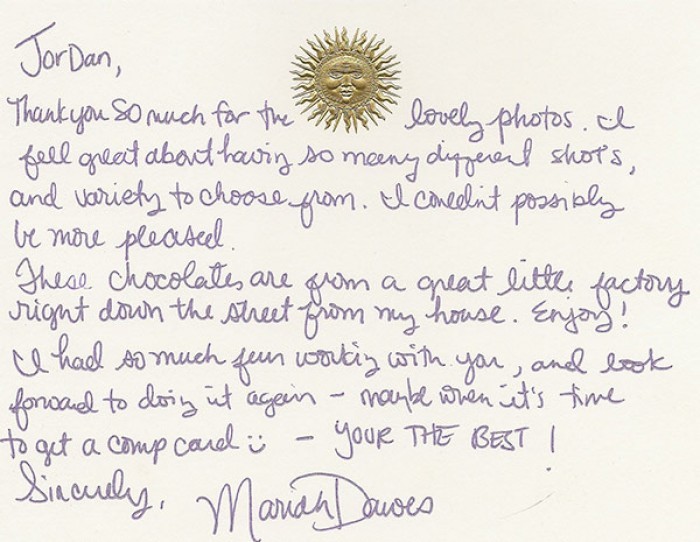 JorDan,
Thank you SO much for the lovely photos. I
feel great about having so many different shots,
and variety to choose from. I couldn't possibly
be more pleased.
These chocolates are from a great little factory
right down the street from my house. Enjoy!
I had so much fun working with you, and look
forward to doing it again - maybe when it's time
to get a comp card :) - YOUR THE BEST!
Sincerely,
Mariah Dawes